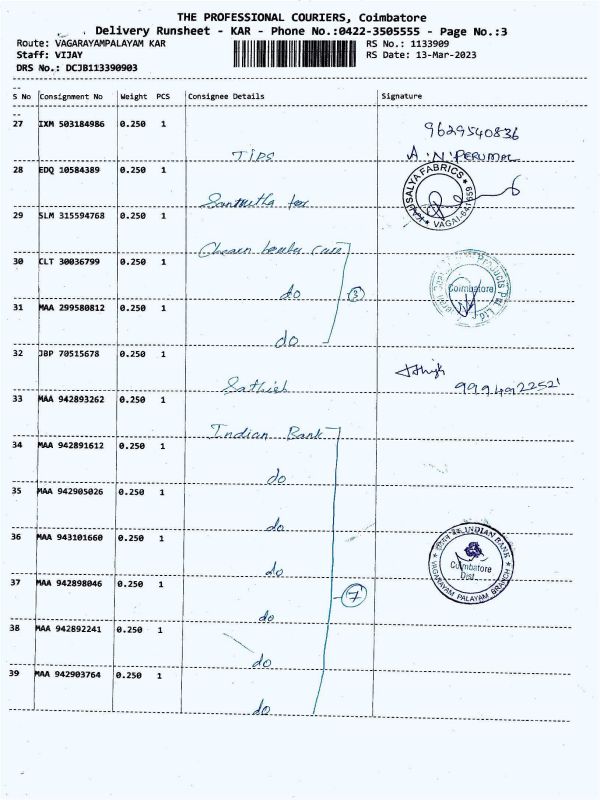 THE PROFESSIONAL COURIERS, Coimbatore
Delivery Runsheet - KAR - Phone No.:0422-3505555 - Page No.:3
Route: VAGARAYAMPALAYAM KAR
RS No.: 1133909
Staff: VIJAY
RS Date: 13-Mar-2023
DRS No.: DCJB113390903
S No Consignment No Weight PCS Consignee Details Signature
27 IXM 503184986 0.250 1
9629540836
TIPS A.N.PERUMAL
28 EDQ 10584389 0.250 1
KAUSALYA FABRICS
VAGAI-641 659
29 SLM 315594768 0.250 1
30 CLT 30036799 0.250 1
do 3
Coimbatore
31 MAA 299580812 0.250 1
do
32 JBP 70515678 0.250 1
Sathish
9994922521
33 MAA 942893262 0.250 1
Indian Bank
34 MAA 942891612 0.250 1
do
35 MAA 942905026 0.250 1
do
36 MAA 943101660 0.250 1
do
INDIAN BANK
Coimbatore
Dist.
VAGARAYAM PALAYAM BRANCH
37 MAA 942898046 0.250 1
7
do
38 MAA 942892241 0.250 1
do
39 MAA 942903764 0.250 1
do